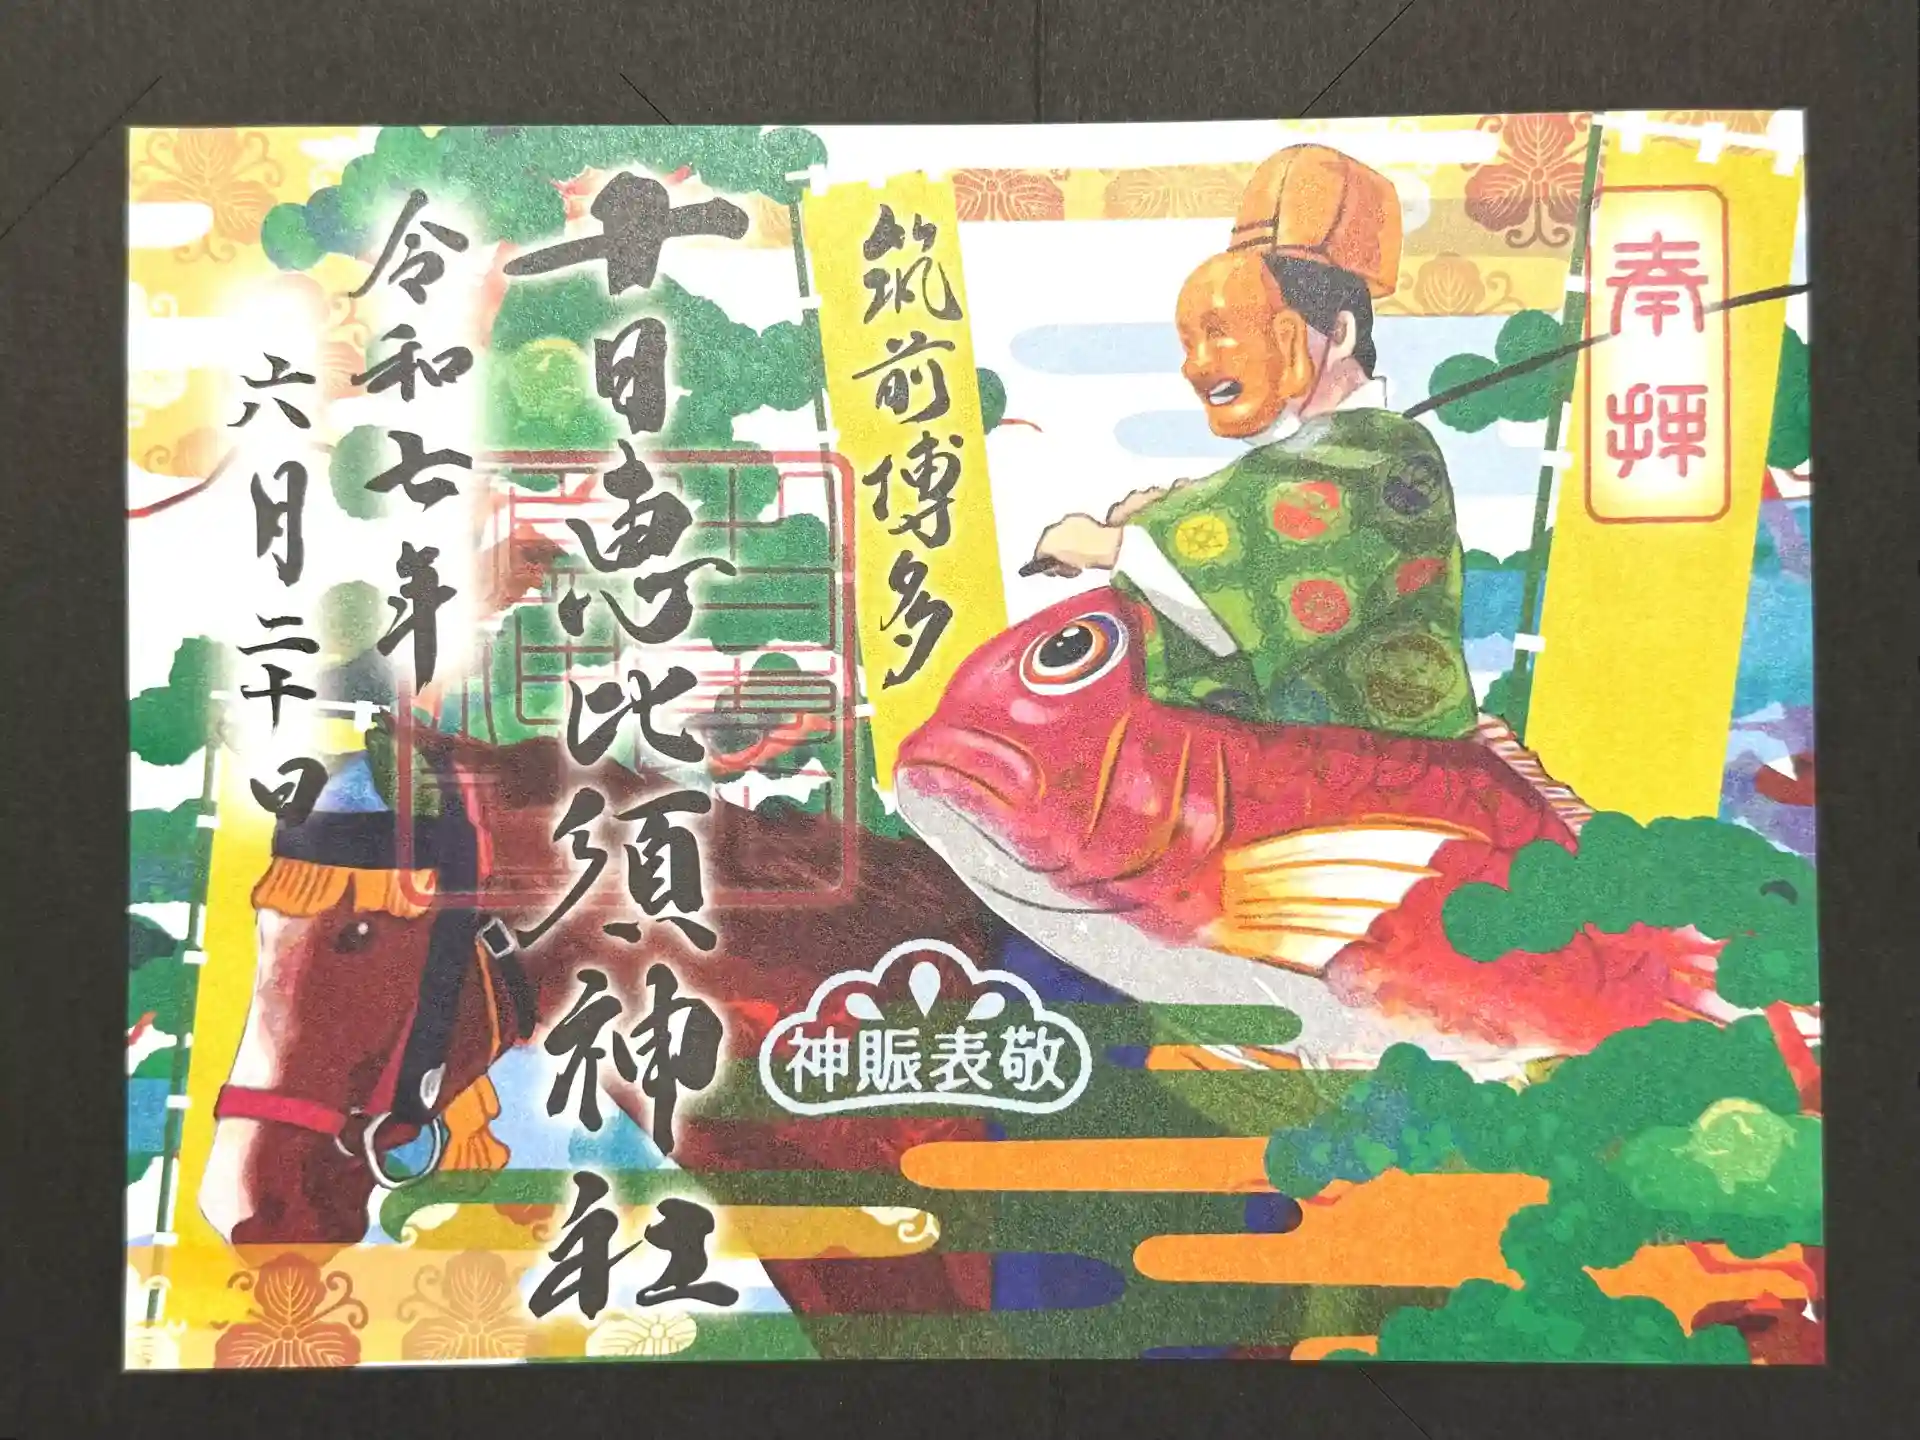 奉拝
筑前博多
十日恵比須神社
令和七年
六月二十日
神賑表敬